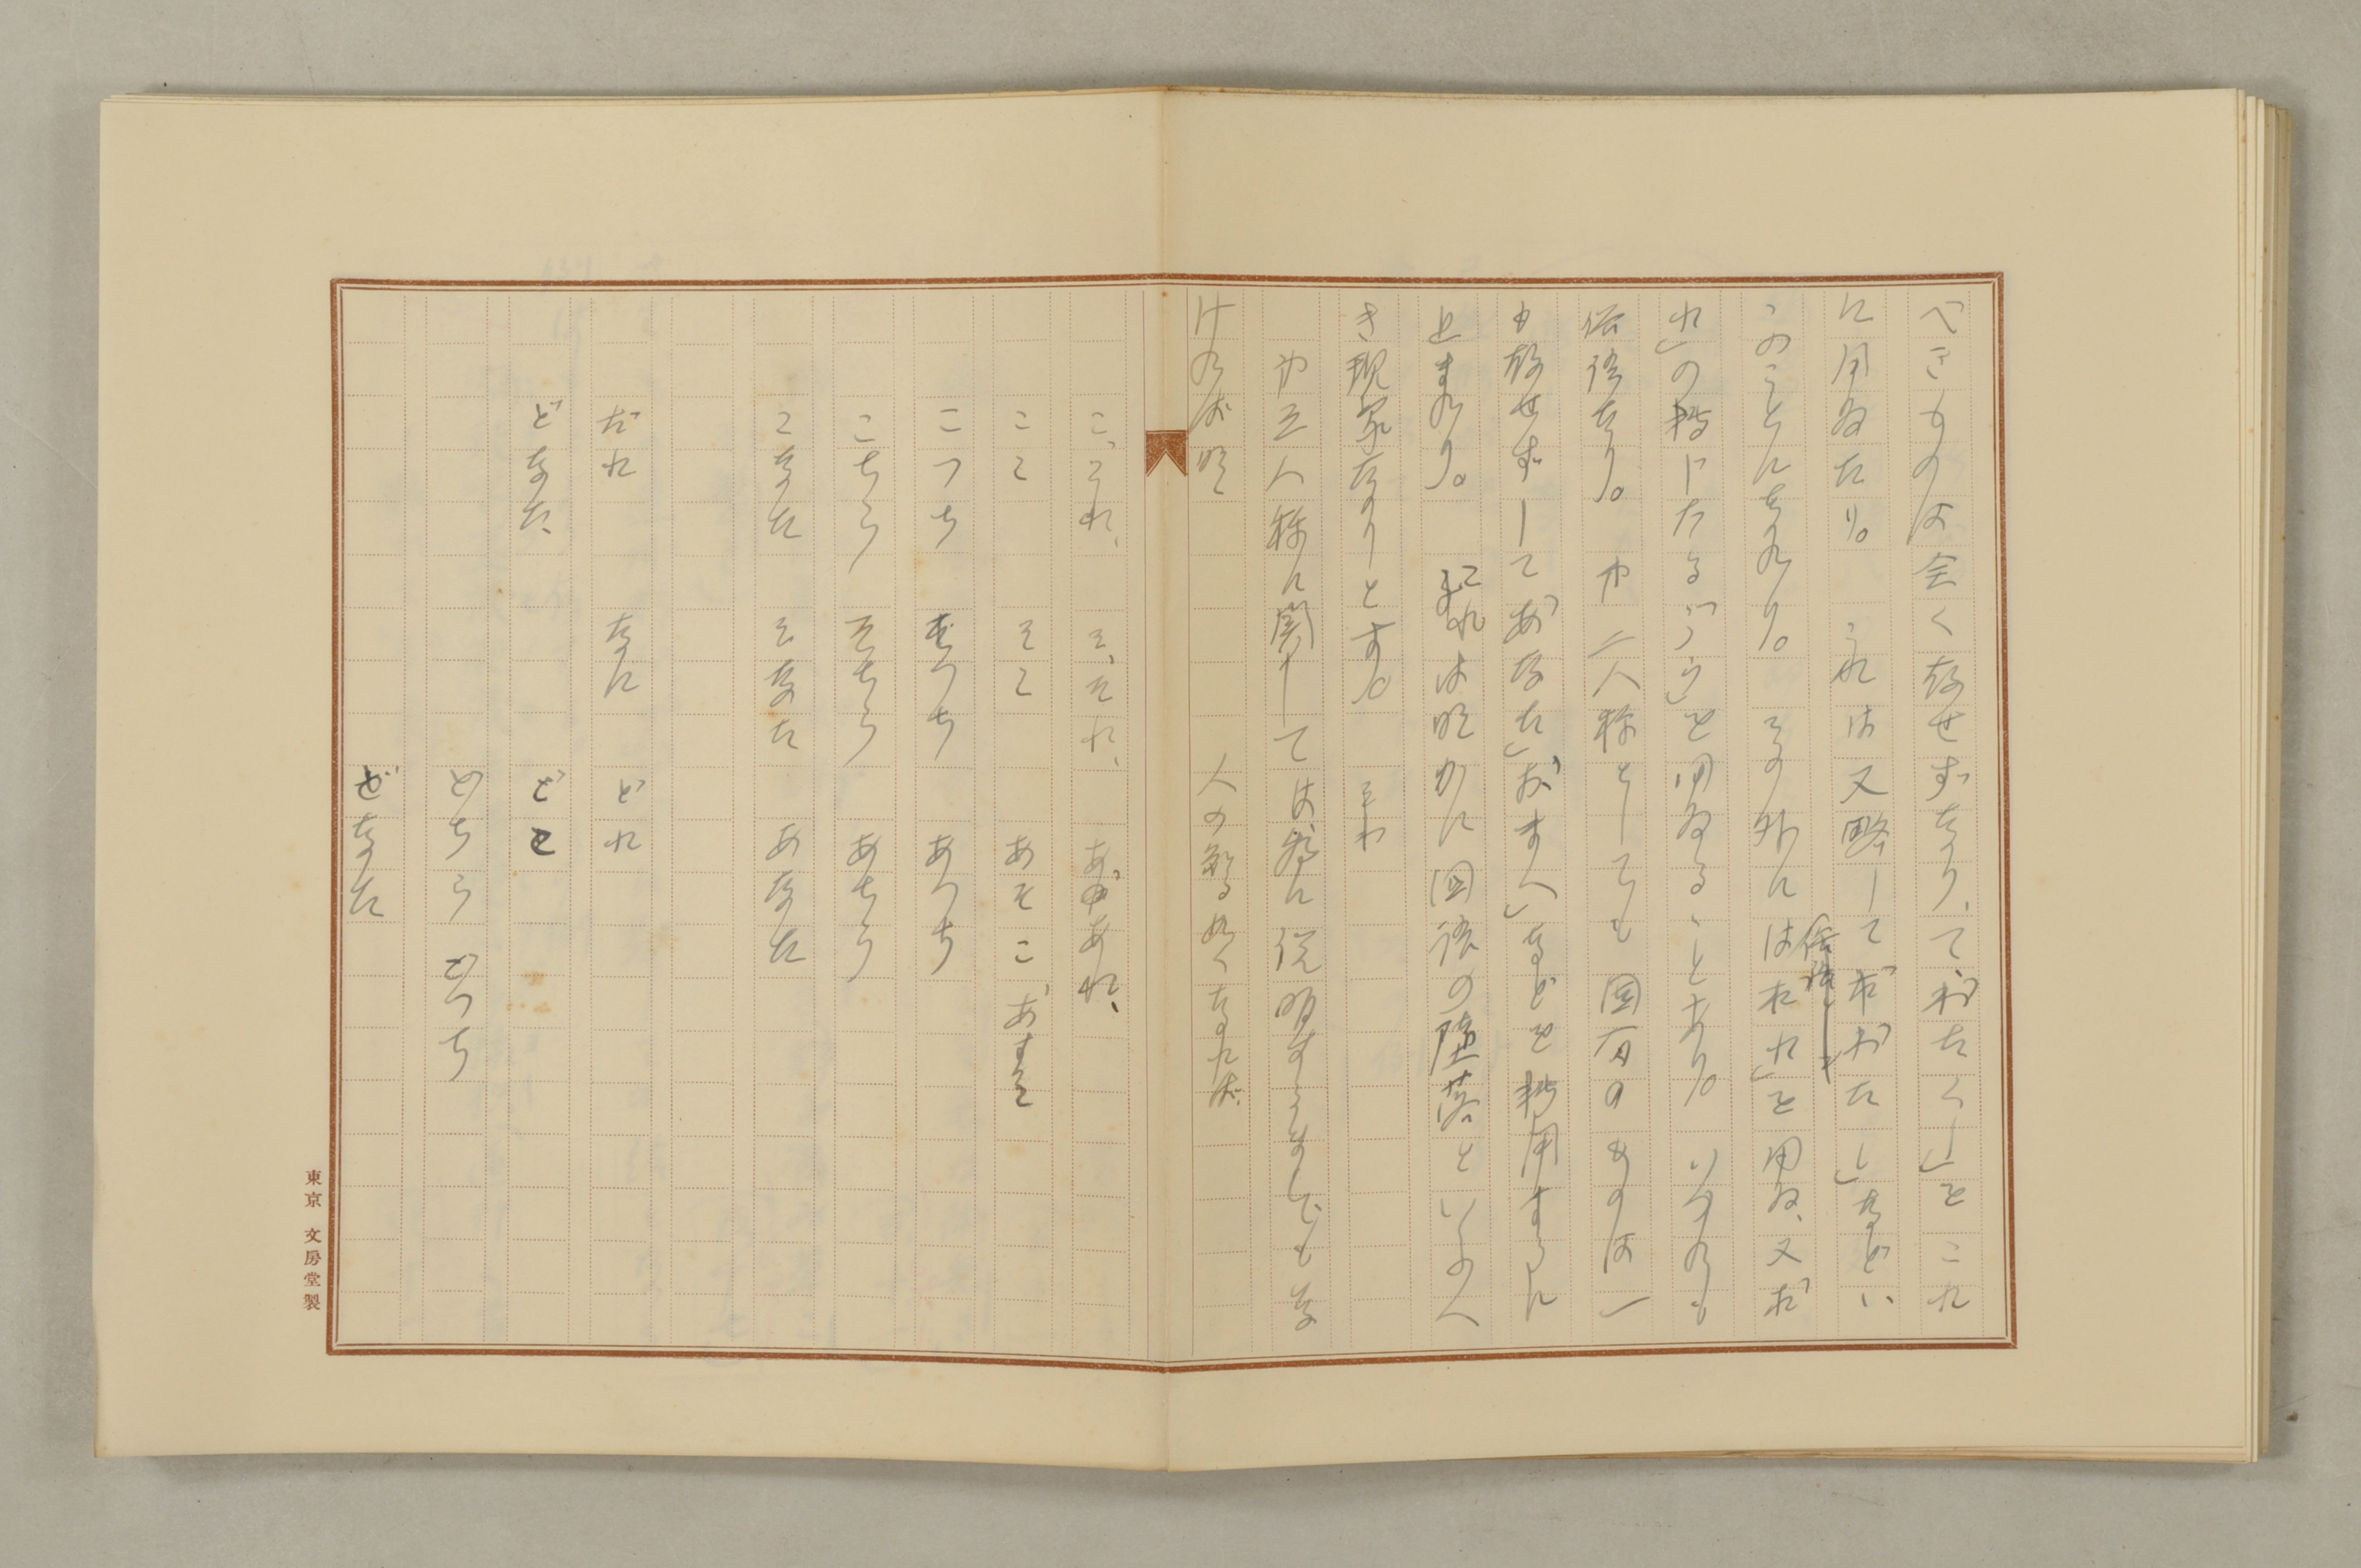 べきものは全く存せずなりて「わたくし」をこれ
に用ゐたり。これは又略して「わたし」などい
ふのことになれり。その外には俗語として「おれ」を用ゐ、又「お
れ」の転じたる「うら」を用ゐることあり。いづれも
俗語なり。第二人称としても固有のものは一
も存せずして「あなた」「おまへ」などを転用するに
止まれり。これは明かに国語の堕落といふべ
き現象なりとす。
第三人称に関しては、特に説明するまでもな
ければ
人の知る如くなれば、
こ、これ、 そ、それ、 あ、あれ、
ここ そこ あそこ あすこ
こつち そつち あつち
こちら そちら あちら
こなた そなた あなた
だれ なに どれ
どなた、 どこ
どちら どつち
どなた
東京 文房堂製